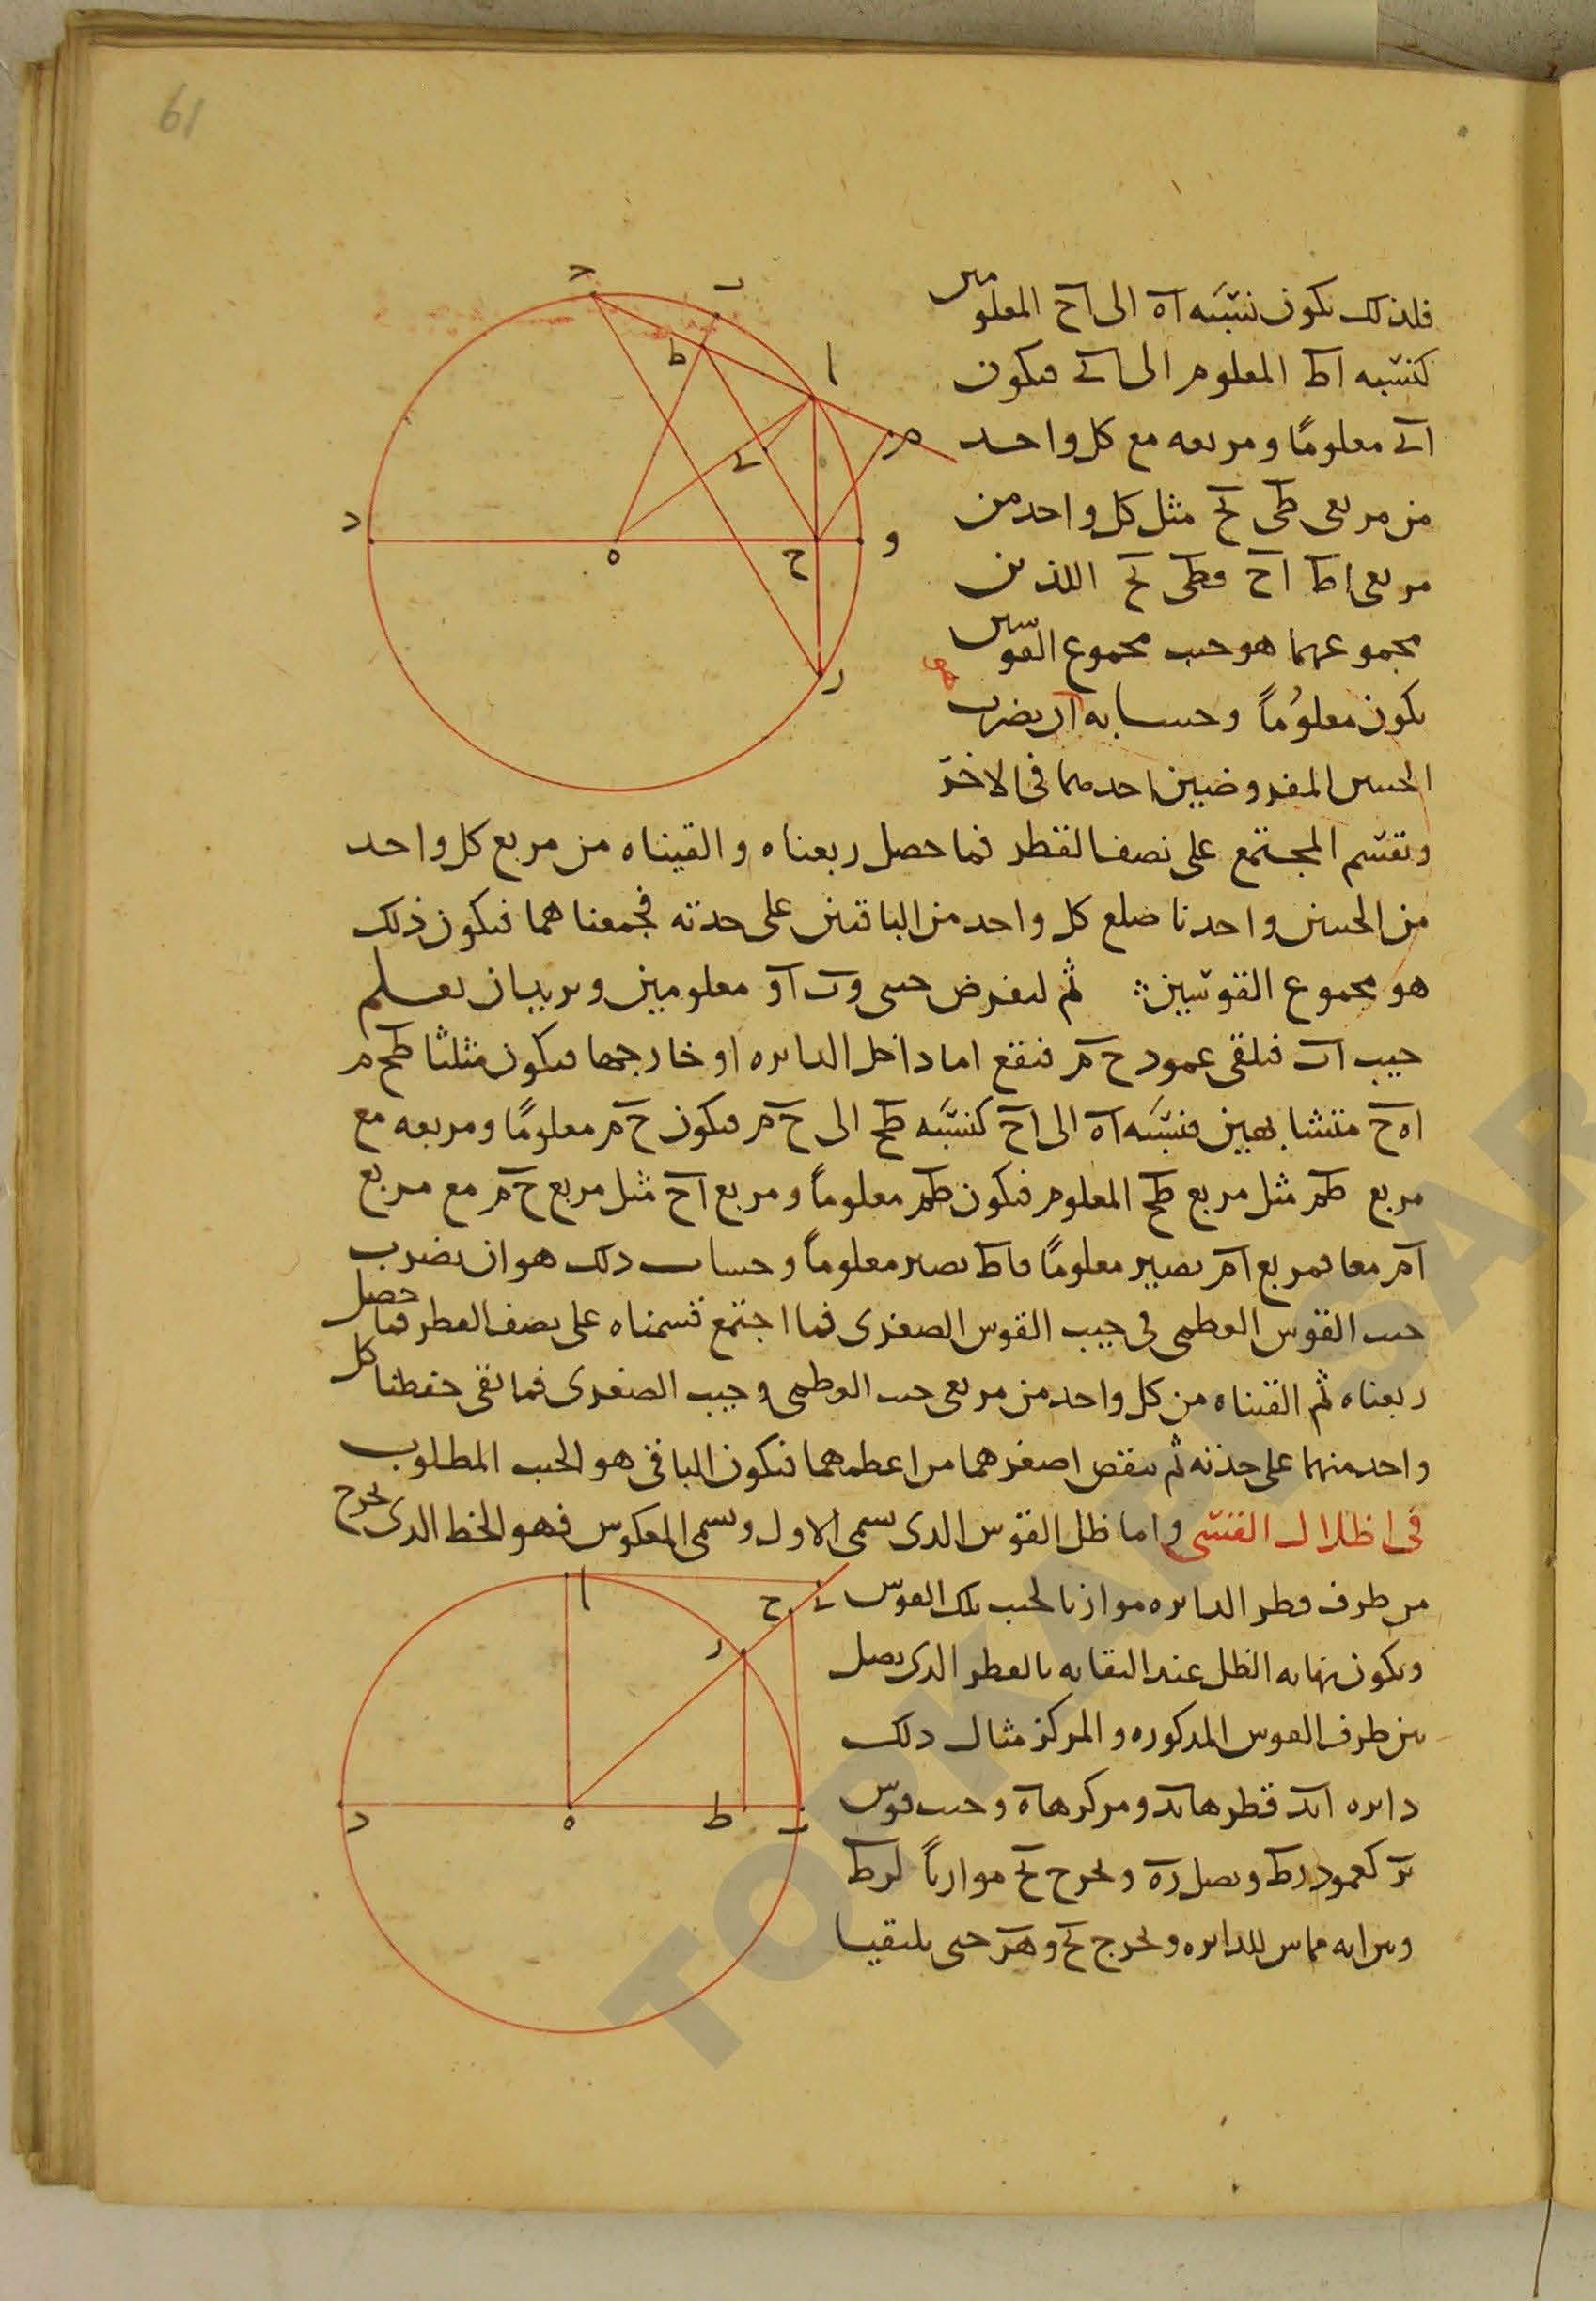 61
فلذلك يكون نسبة اه الى اح المعلومين
كنسبة اط المعلوم الى اى فيكون
اى معلومًا ومربعه مع كل واحد
من مربعى طى يح مثل كل واحد من
مربعى اط اح فطى يح اللذين
مجموعهما هو جيب مجموع القوسين
يكون معلومًا وحسابه ان يضرب
الجيبين المفروضين احدهما فى الاخر
ونقسم المجتمع على نصف القطر فما حصل ربعناه والقيناه من مربع كل واحد
من الجيبين واخذنا ضلع كل واحد من الباقيين على حدته فجمعناهما فيكون ذلك
هو مجموع القوسين ثم لنفرض جيبى وب او معلومين ونريد ان نعلم
جيب اب فنلقى عمود ح م فيقع اما داخل الدايره او خارجها فيكون مثلثا طح م
اه ح متشابهين فنسبة اه الى اح كنسبة طح الى ح م فيكون ح م معلومًا ومربعه مع
مربع طم مثل مربع طح المعلوم فيكون طم معلومًا ومربع اح مثل مربع ح م مع مربع
ام معا فمربع ام يصير معلومًا فاط يصير معلومًا وحساب ذلك هو ان يضرب
جيب القوس العظمى فى جيب القوس الصغرى فما اجتمع قسمناه على نصف القطر فما حصل
ربعناه ثم القيناه من كل واحد من مربعى جيب العظمى وجيب الصغرى فما بقى حفظنا كل
واحد منهما على حدته ثم ننقص اصغرهما من اعظمهما فيكون الباقى هو الجيب المطلوب
فى اظلال القسى واما ظل القوس الذى يسمى الاول ويسمى المعكوس فهو الخط الذى يخرج
من طرف قطر الدايره موازيا لجيب تلك القوس
ويكون نهايه الظل عند التقايه بالقطر الذى يصل
بين طرف القوس المذكوره والمركز مثال ذلك
دايره ابد قطرها بد ومركزها ه وجيب قوس
بر كعمود رط ونصل ره ونخرج بح موازيًا لرط
وبين انه مماس للدايره ونخرج بح وهر حتى يلتقيا
ح
ب
ط
ا
م
ى
د
ه
ح
و
ر
ا
ح
ى
ر
د
ه
ط
ب
TOPKAPI SAR